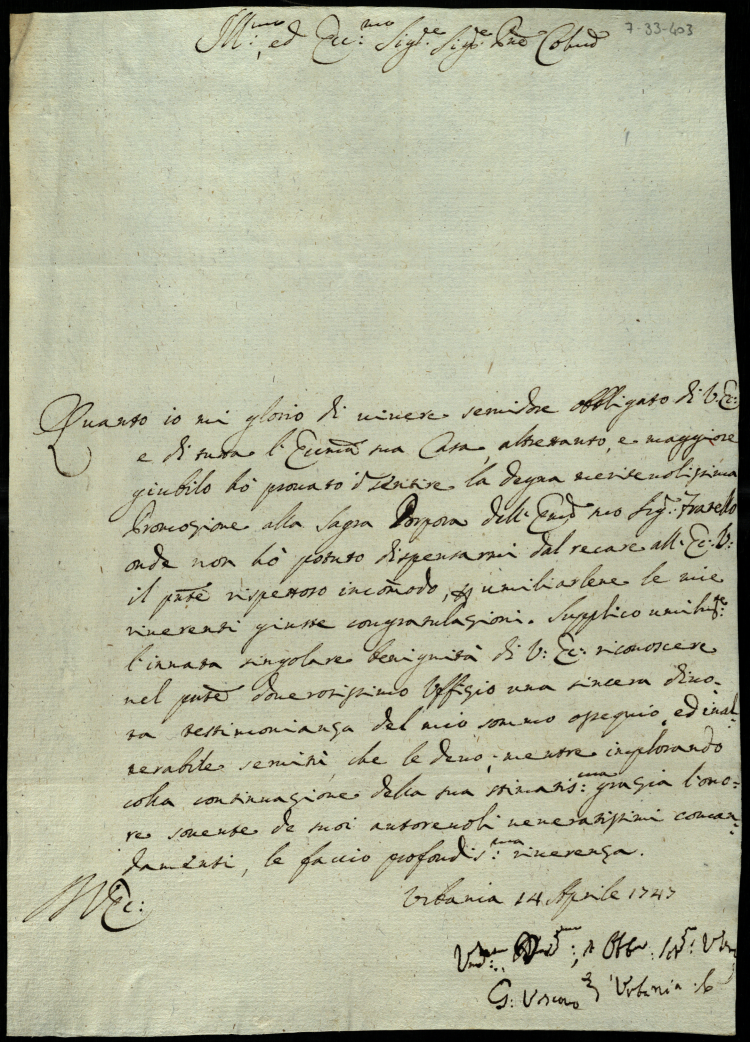 7-33-403
Ill:mo, ed Ecc:mo Sig.re Sig.re Pne Colmo
Quanto io mi glorio di vivere servidore obbligato di V: Ec:
e di tutta l'Eccma sua Casa, altrettanto, e maggiore
giubilo hò provato d sentire la degna meritevolissima
Promozione alla Sagra Porpora dell'Emo suo Sig.: Fratello
onde non hò potuto dispensarmi dal recare all'Ec: V:
il pnte rispettoso incomodo, p umiliarlene le mie
riverenti giuste congratulazioni. Supplico umilmte:
l'innata singolare benignità di V: Ec: riconoscere
nel pnte doverosissimo Uffizio una sincera divo-
ta testimonianza del mio sommo ossequio, ed inal-
terabile servitù, che le devo; mentre implorando
colla continuazione della sua stimatis:ma grazia l'ono-
re sovente de suoi autorevoli veneratissimi coman-
damenti, le faccio profondis:ma riverenza.
Urbania 14 Aprile 1747
V Ec:
G: Vescovo d Urbania